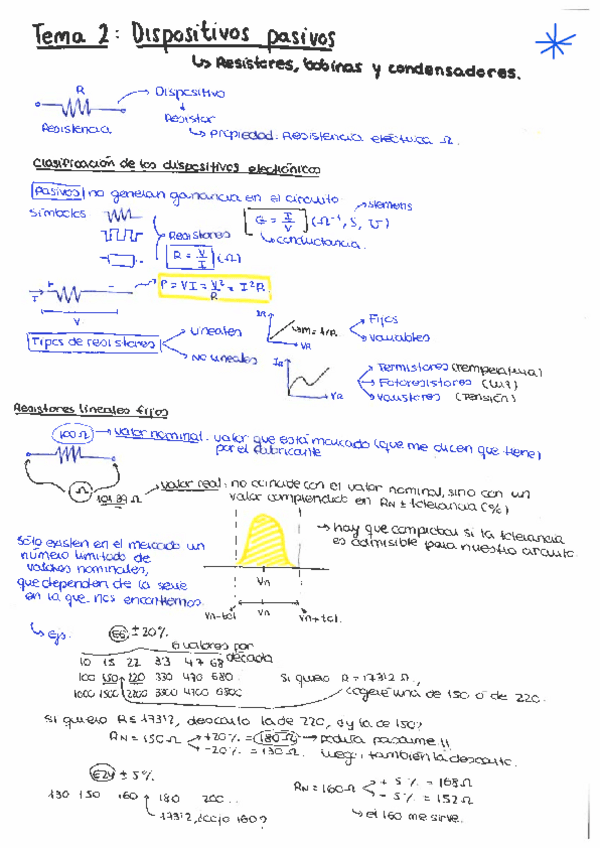 Tema 2: Dispositivos pasivos
↳ Resistores, bobinas y condensadores.
R → Dispositivo
Resistor
Resistencia ↳ Propiedad: Resistencia eléctrica Ω.
Clasificación de los dispositivos electrónicos
Pasivos | no generan ganancia en el circuito
Símbolos
G = I/V (Ω⁻¹, S, ℧) → siemens
↳ conductancia.
Resistores
R = V/I (Ω)
P = VI = V²/R = I²R
I + -
V
Tipos de resistores
Lineales
IR
m = 1/R
VR
Fijos
Variables
No lineales
IR
VR
Termistores (Temperatura)
Fotoresistores (Luz)
Varistores (Tensión)
Resistores lineales fijos
100Ω → valor nominal: valor que está marcado (que me dicen que tiene)
por el fabricante
Ω
101.89 Ω
valor real: no coincide con el valor nominal, sino con un
valor comprendido en RN ± tolerancia (%)
→ hay que comprobar si la tolerancia
es admisible para nuestro circuito.
Sólo existen en el mercado un
número limitado de
valores nominales,
que dependen de la serie
en la que nos encontremos.
Vn
Vn-tol Vn Vn+tol.
↳ Ejs. E6 ± 20%
6 valores por
década
10 15 22 33 47 68
100 150 220 330 470 680
1000 1500 2200 3300 4700 6800
Si quiero R = 173'2 Ω,
cogeré una de 150 ó de 220.
Si quiero R ≤ 173'2, descarto la de 220, ¿y la de 150?
RN = 150 Ω → +20% = 180 Ω → Podría pasarme!!
-20% = 130 Ω. Luego, también la descarto.
E24 ± 5%
130 150 160 180 200..
173'2, ¿cojo 160?
RN = 160 Ω + 5% = 168 Ω
- 5% = 152 Ω
↳ el 160 me sirve.